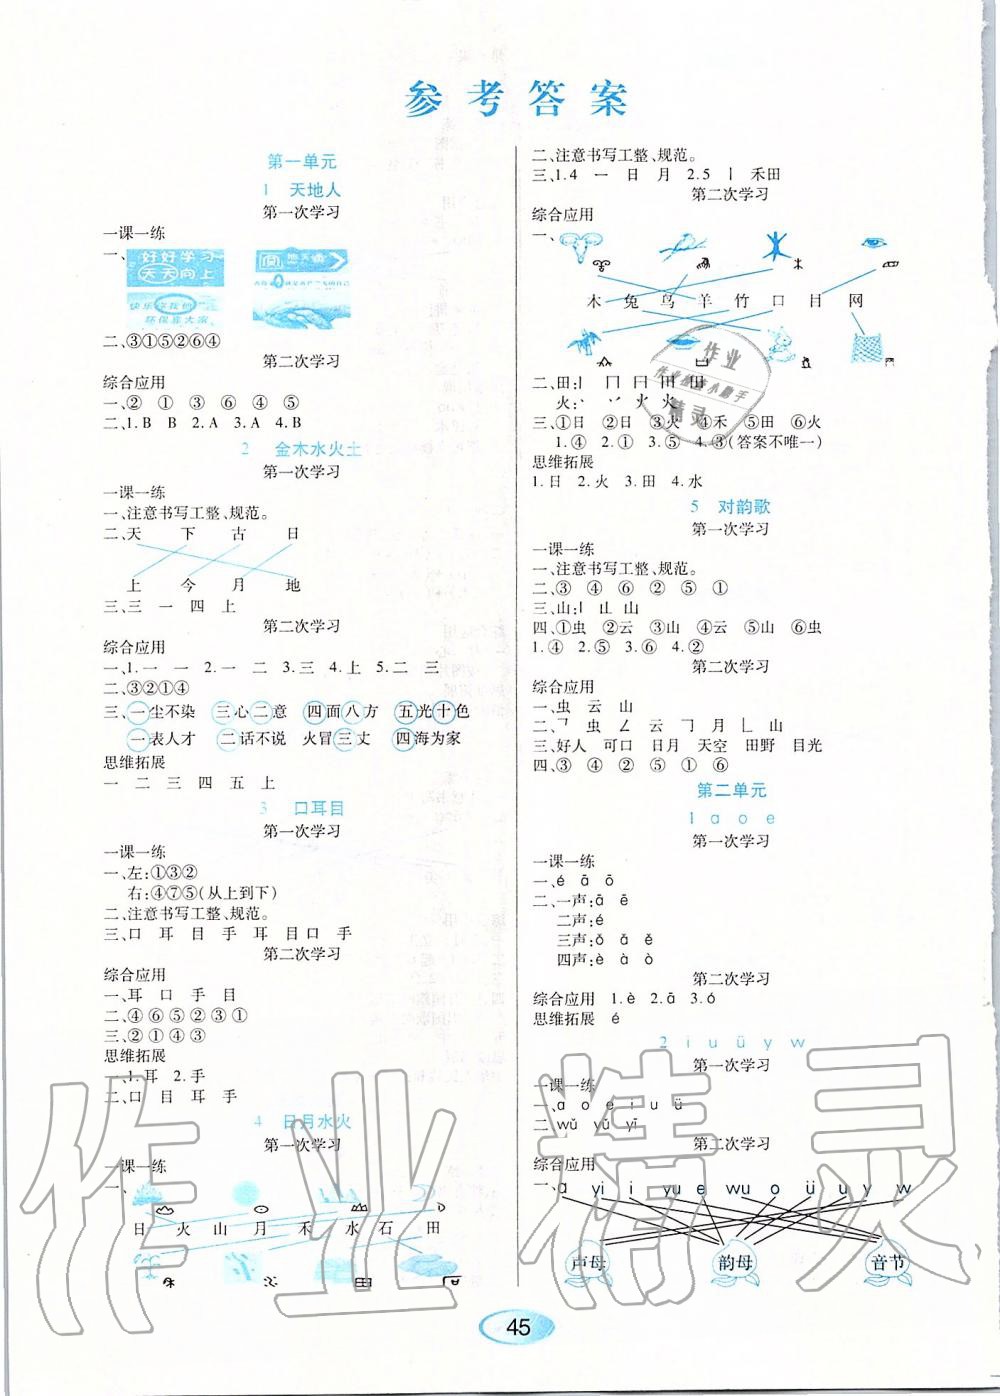 参考答案
第一单元
1 天地人
第一次学习
一课一练
一、
好好学习
天天向上
二、③①⑤②⑥④
第二次学习
综合应用
一、② ① ③ ⑥ ④ ⑤
二、1.B B 2.A 3.A 4.B
2 金木水火土
第一次学习
一课一练
一、注意书写工整、规范。
二、天 下 古 日
上 今 月 地
三、三 一 四 上
第二次学习
综合应用
一、1.一 一 2.一 二 3.三 4.上 5.二 三
二、③②①④
三、一尘不染 三心二意 四面八方 五光十色
一表人才 二话不说 火冒三丈 四海为家
思维拓展
一 二 三 四 五 上
3 口耳目
第一次学习
一课一练
一、左:①③②
右:④⑦⑤(从上到下)
二、注意书写工整、规范。
三、口 耳 目 手 耳 目口 手
第二次学习
综合应用
一、耳 口 手 目
二、④⑥⑤②③①
三、②①④③
思维拓展
一、1.耳 2.手
二、口 目 耳 手
4 日月水火
第一次学习
一课一练
一、
日 火 山 月 禾 水 石 田
二、注意书写工整、规范。
三、1.4 一 日 月 2.5 丨 禾田
第二次学习
综合应用
一、
木 兔 鸟 羊 竹 口 目 网
二、田:丨 冂 日 田 田
火:丶 丷 火 火
三、①日 ②日 ③火 ④禾 ⑤田 ⑥火
1.④ 2.① 3.⑤ 4.③(答案不唯一)
思维拓展
1.日 2.火 3.田 4.水
5 对韵歌
第一次学习
一课一练
一、注意书写工整、规范。
二、③ ④ ⑥ ② ⑤ ①
三、山:丨 山 山
四、①虫 ②云 ③山 ④云 ⑤山 ⑥虫
1.④ 2.⑤ 3.⑥ 4.②
第二次学习
综合应用
一、虫 云 山
二、㇕ 虫 ㇜ 云 ㇆ 月 ㇗ 山
三、好人 可口 日月 天空 田野 目光
四、③ ④ ② ⑤ ① ⑥
第二单元
1 a o e
第一次学习
一课一练
一、é ā ō
二、一声:ā ē
二声:é
三声:ǒ ǎ ě
四声:è à ò
第二次学习
综合应用 1.è 2.ā 3.ó
思维拓展 é
2 i u ü y w
第一次学习
一课一练
一、a o e i u ü
二、wǔ yú yī
第二次学习
综合应用
一、a yi i yu e wu o ü u y w
声母 韵母 音节
45
作业精灵
作业检查小助手